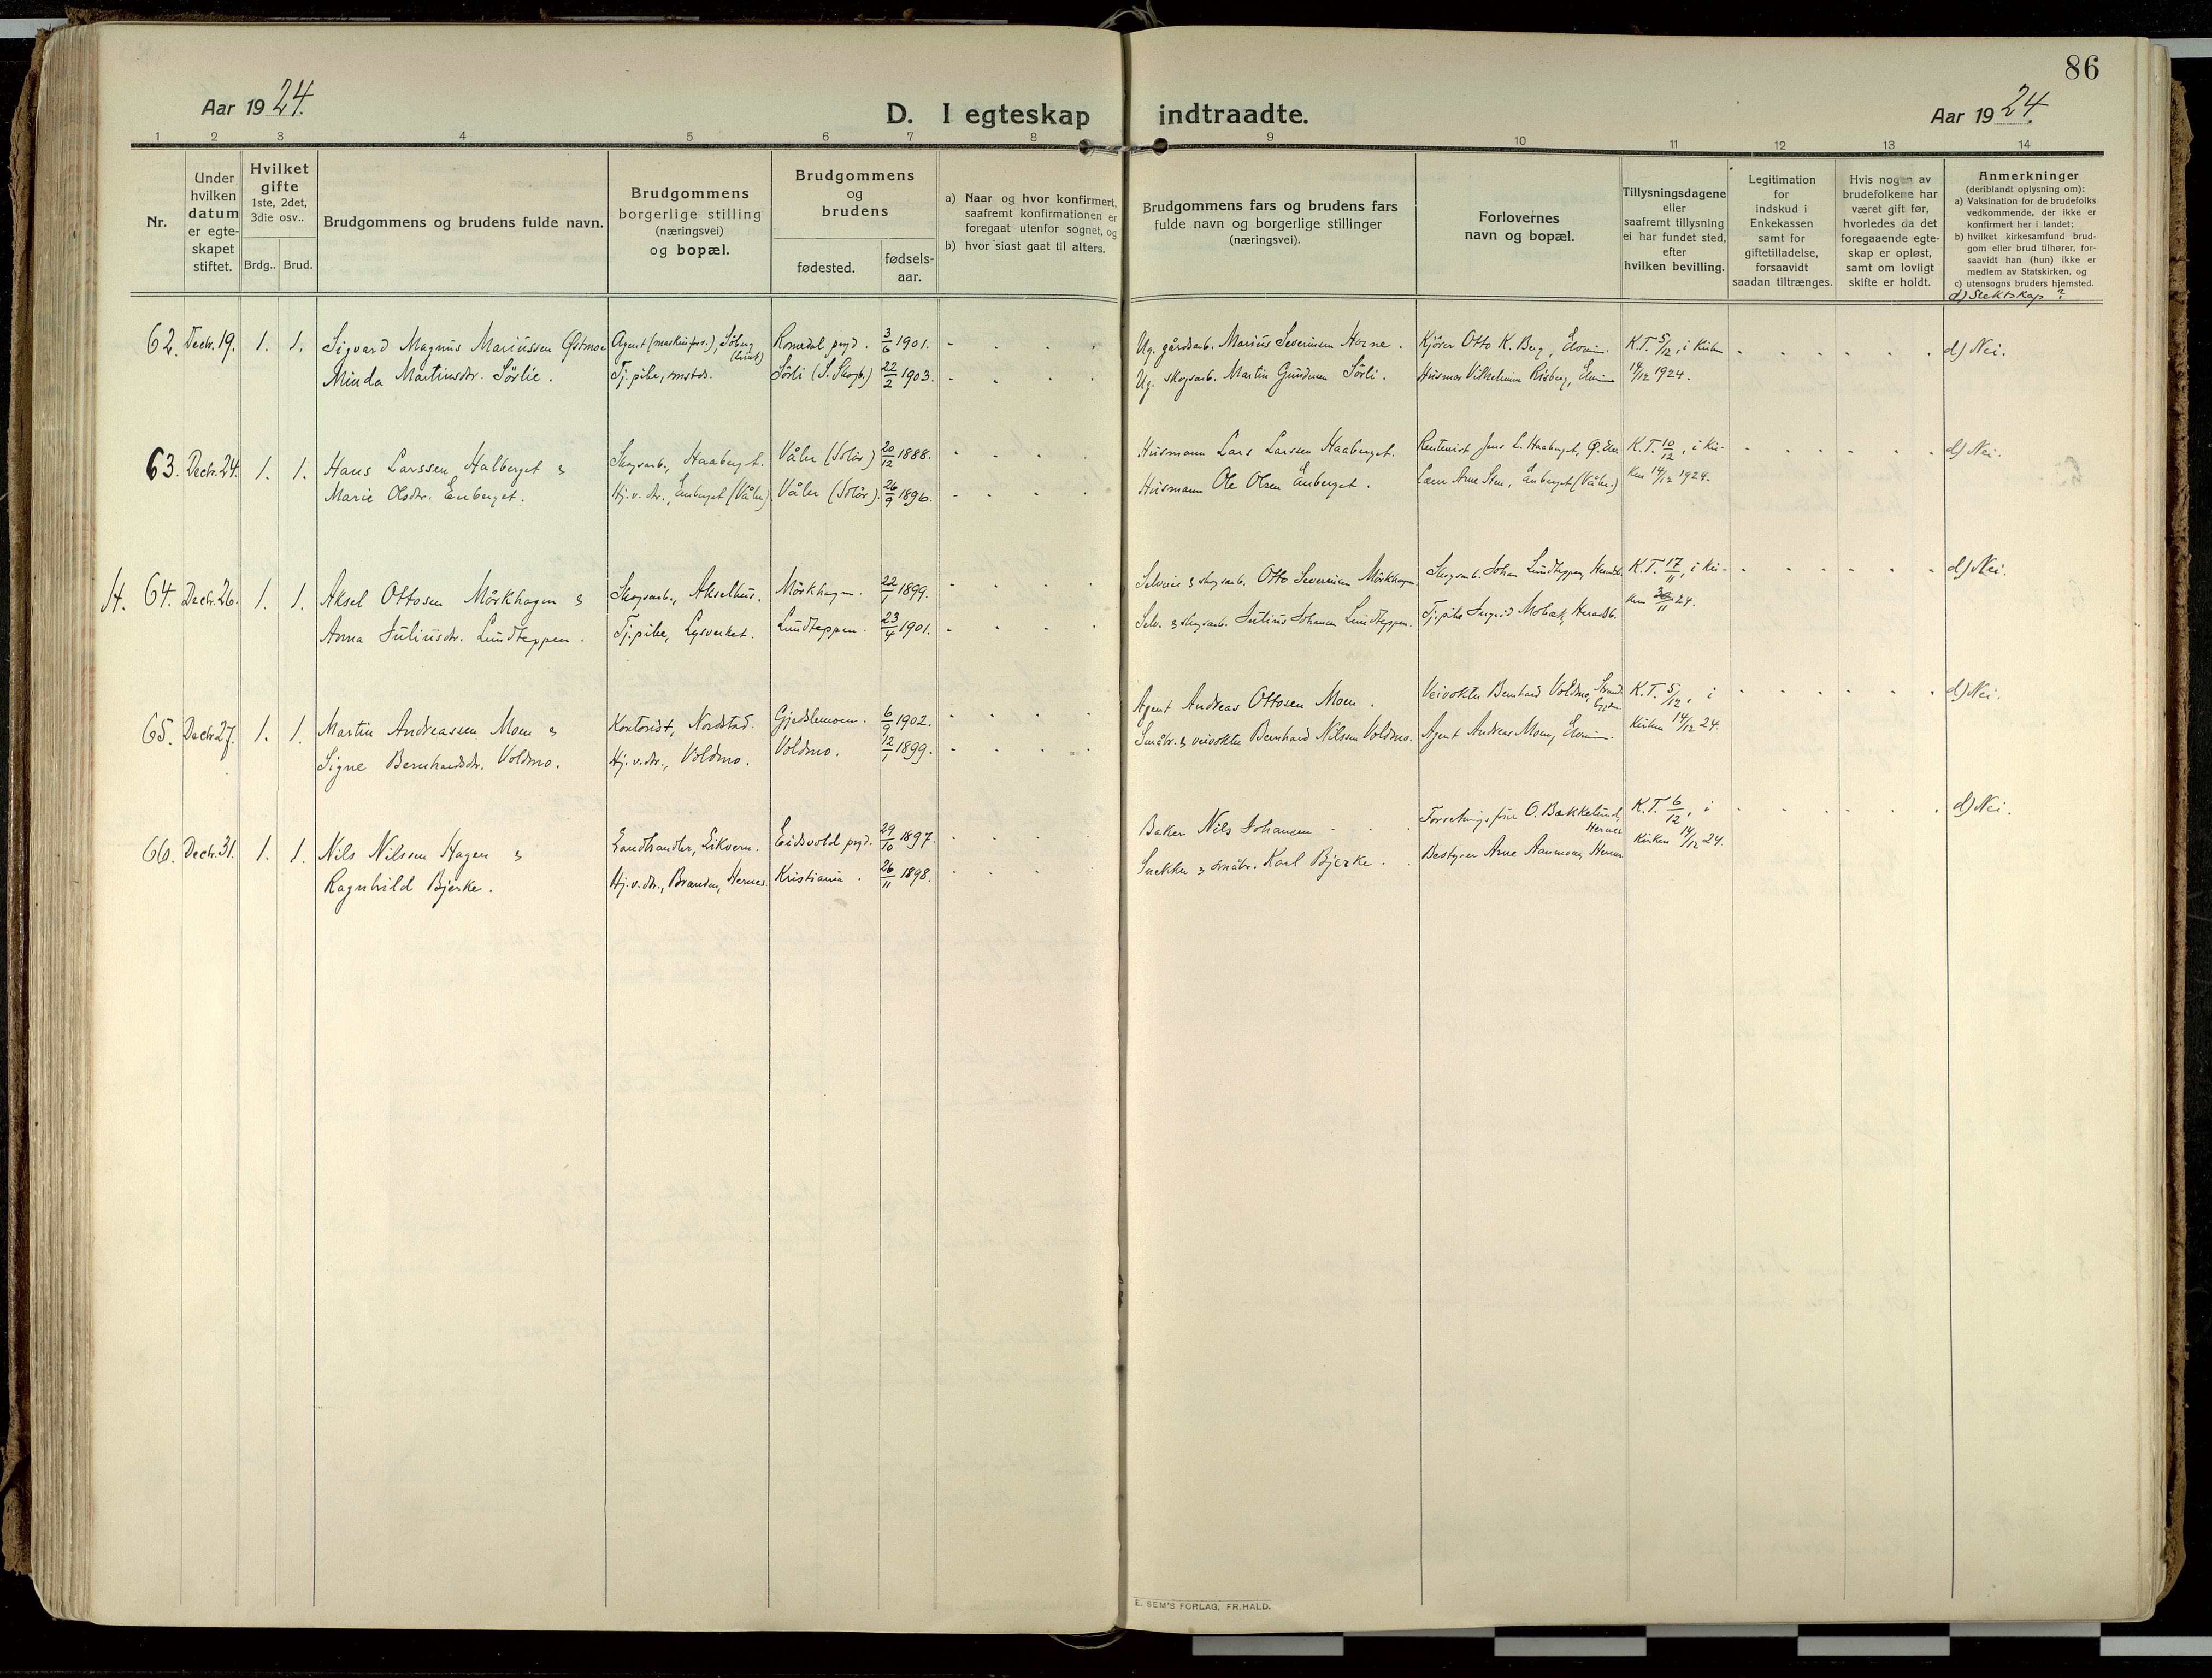 86
Aar 1924.
D. I egteskap indtraadte.
Aar 1924.
1 2 3 4 5 6 7 8 9 10 11 12 13 14
Nr.
Under hvilken datum er egte-skapet stiftet.
Hvilket gifte 1ste, 2det, 3die osv..
Brdg.. Brud.
Brudgommens og brudens fulde navn.
Brudgommens borgerlige stilling (næringsvei) og bopæl.
Brudgommens og brudens
fødested.
fødsels-aar.
a) Naar og hvor konfirmert, saafremt konfirmationen er foregaat utenfor sognet, og
b) hvor sidst gaat til alters.
Brudgommens fars og brudens fars fulde navn og borgerlige stillinger (næringsvei).
Forlovernes navn og bopæl.
Tillysningsdagene eller saafremt tillysning ei har fundet sted, efter hvilken bevilling.
Legitimation for indskud i Enkekassen samt for giftetilladelse, forsaavidt saadan tiltrænges.
Hvis nogen av brudefolkene har været gift før, hvorledes da det foregaaende egte-skap er opløst, samt om lovligt skifte er holdt.
Anmerkninger
(deriblandt oplysning om):
a) Vaksination for de brudefolks vedkommende, der ikke er konfirmert her i landet;
b) hvilket kirkesamfund brud-gom eller brud tilhører, for-saavidt han (hun) ikke er medlem av Statskirken, og
c) utensogns bruders hjemsted.
d) Slektskap?
62. Decbr. 19. 1. 1. Sigvard Magnus Mariussen Østmoe Agent (maskinforr.), Søberg Romedal prgd. 3/6 1901. Ug. gårdsarb. Marius Severinsen Horne. Kjører Otto K. Berg, Elverum. K.T. 5/12, i Kirken d) Nei.
Minda Martinsdtr. Sørlie. Tj.pike, mstds. Sørli (S. Skogb.) 22/2 1903. Ug. skogsarb. Martin Gundersen Sørli. Husmor Vilhelmine Risberg, Elverum 14/12 1924.
63. Decbr. 24. 1. 1. Hans Larssen Halberget & Skogsarb., Haaberget. Våler (Solør) 20/12 1888. Husmann Lars Larssen Haaberget. Rentenist Jens L. Haaberget, K.T. 10/12, i Kir- d) Nei.
Marie Olsdtr. Enberget. Hj.v. dtr., Enberget (Våler) Våler (Solør). 26/9 1896. Husmann Ole Olsen Enberget. Lærer Arne Sten, Enberget (Våler.) ken 14/12 1924.
H. 64. Decbr. 26. 1. 1. Aksel Ottosen Mörkhagen & Skogsarb., Akselhus. Mörkhagen. 22/1 1899. Selveier & skogsarb. Otto Severinsen Mörkhagen. Skogsarb. Johan Lundteppen, K.T. 17/11, i Kir- d) Nei.
Anna Juliusdtr. Lundteppen. Tj.pike, Lysverket. Lundteppen. 23/4 1901. Selv. & skogsarb. Julius Johansen Lundteppen. Tj.pike Ingrid Mobæk, Heradsb. ken 30/11 24.
65. Decbr. 27. 1. 1. Martin Andreassen Moen & Kontorist, Nordstad. Gjedslemoen. 6/9 1902. Agent Andreas Ottosen Moen. Veivokter Bernhard Voldmo, K.T. 5/12, i d) Nei.
Signe Bernhardsdtr. Voldmo. Hj.v. dtr., Voldmo. Voldmo. 12/1 1899. Småbr. & veivokter Bernhard Nilssen Voldmo. Agent Andreas Moen, Elverum. Kirken 14/12 24.
66. Decbr. 31. 1. 1. Nils Nilssen Hagen & Landhandler, Eikvern. Eidsvold prgd. 29/10 1897. Baker Nils Johansen Forretningsfører O. Bækkelund, Hernes K.T. 6/12, i d) Nei.
Ragnhild Bjerke. Hj.v. dtr., Brænden, Hernes. Kristiania. 26/11 1898. Snekker & småbr. Karl Bjerke. Bestyrer Arne Aanmoen, Hernes Kirken 14/12 24.
E. SEM'S FORLAG, FR.HALD.